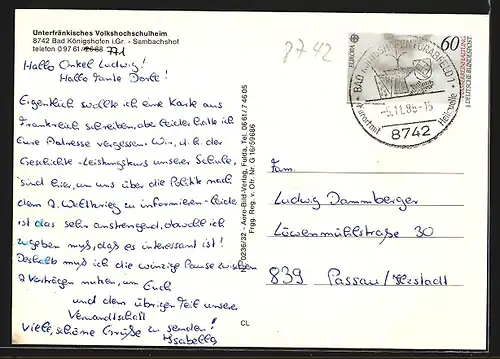 Unterfränkisches Volkshochschulheim
8742 Bad Königshofen i.Gr. - Sambachshof
telefon 0 97 61 / 771
8742
EUROPA
60
DEUTSCHE BUNDESPOST
BAD KÖNIGSHOFEN I. GRABFELD
-5.11.86-15
Kurort mit Heilquelle
8742
Hallo Onkel Ludwig!
Hallo Tante Dorle!
Eigentlich wollte ich eine Karte aus
Frankreich schreiben, aber leider habe ich
Eure Adresse vergessen. Wir, d. h. der
Geschichte-Leistungskurs unserer Schule,
sind hier, um uns über die Politik nach
dem 2. Weltkrieg zu informieren - leider
ist das sehr anstrengend, obwohl ich
zugeben muß, daß es interessant ist!
Deshalb muß ich die winzige Pause zwischen
2 Vorträgen nutzen, um Euch
und dem übrigen Teil unserer
Verwandtschaft
viele, schöne Grüße zu senden!
Isabella
0236/32 - Aero-Bild-Verlag, Fulda, Tel. 06 61 / 7 46 05
Frgg. Reg. v. Ofr. Nr. G 16/59686
CL
Fam.
Ludwig Dammberger
Löwenmühlstraße 30
839 Passau/Ilzstadt